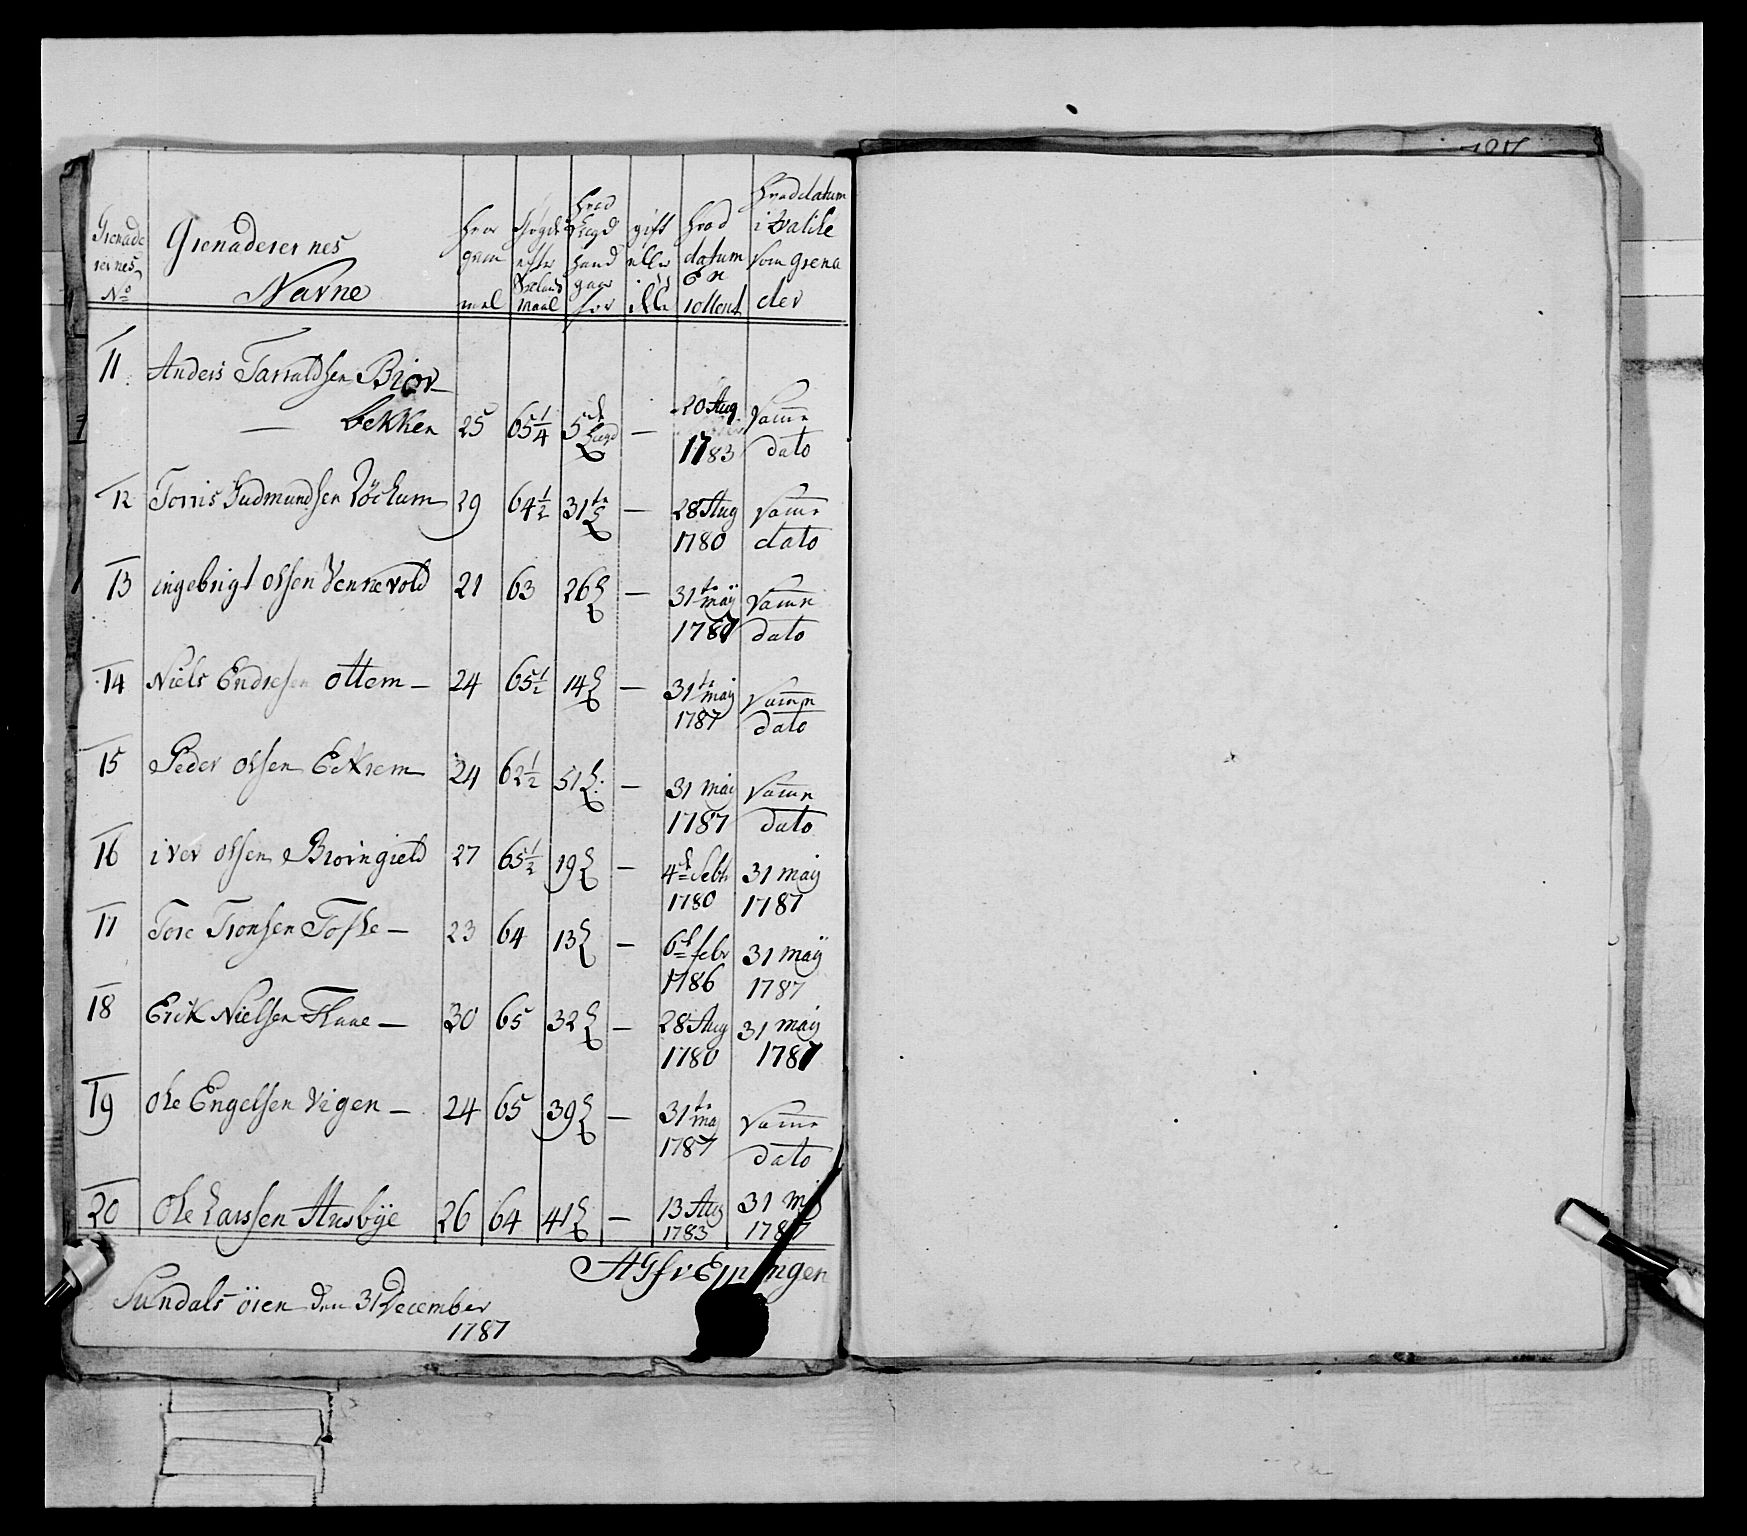 Grenade rernes No | Grenaderernes Navne | hvor gam mel | Højde efter Sielans maal | hvad Lægd hand gaar for | gift eller ikke | hvad datum En rollert | hvad datum i qvalite som grena der
11 Anders Tarraldsen Biør-
— bekken 25 65 1/4 5de Lægd — 20 Aug 1783 Samme dato
12 Torris Gudmundsen Løckum 29 64 1/2 31te L — 28 Aug 1780 Samme dato
13 ingebrigt olsen Vennevold 21 63 26 L — 31te maij 1787 Samme dato
14 Niels Endresen ottem — 24 65 1/2 14 L — 31te maij 1787 Samme dato
15 Peder olsen Eckrem 24 62 1/2 51 L — 31 mai 1787 Samme dato
16 iver olsen Biørngield 27 65 1/2 19 L — 4de febr 1780 31 maij 1787
17 Tore Tronsen Tofte — 23 64 13 L — 6de febr 1786 31 maij 1787
18 Erik Nielsen Flaae — 30 65 32 L — 28 Aug 1780 31 maij 1787
19 ole Engelsen Vigen — 24 65 39 L — 31te maj 1787 Samme dato
20 Ole Larssen Husbye 26 64 41 L — 13 Aug 1783 31 mij 1787
Sundals øren den 31 December
1787